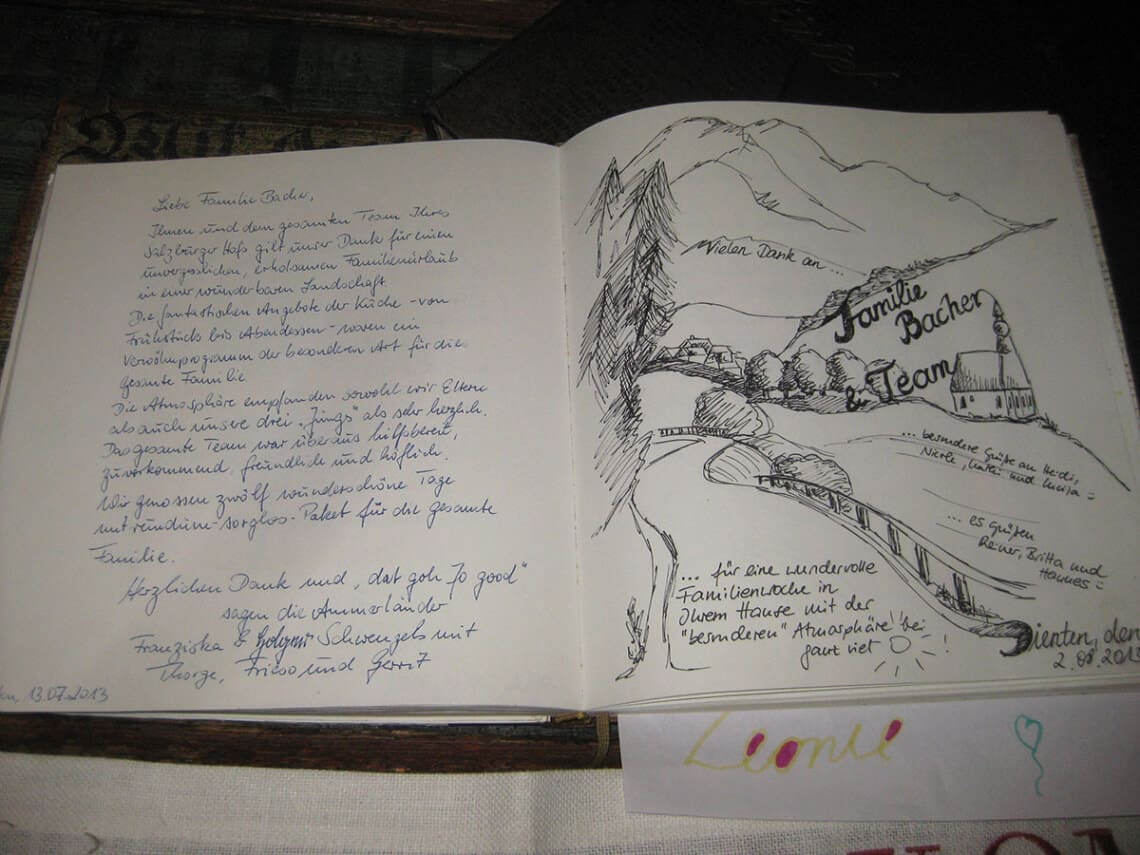 Mit
Liebe Familie Bacher,
Ihnen und dem gesamten Team Ihres
Salzburger Hofs gilt unser Dank für einen
unvergesslichen, erholsamen Familienurlaub
in einer wunderbaren Landschaft.
Die fantastischen Angebote der Küche - von
Frühstück bis Abendessen - waren ein
Verwöhnprogramm der besonderen Art für die
gesamte Familie.
Die Atmosphäre empfanden sowohl wir Eltern
als auch unsere drei „Jungs" als sehr herzlich.
Das gesamte Team war überaus hilfsbereit,
zuvorkommend, freundlich und höflich.
Wir genossen zwölf wunderschöne Tage
mit rundum-sorglos-Paket für die gesamte
Familie.
Herzlichen Dank und „dat goh Jo good"
sagen die Ammerländer
Franziska & Schwengels mit
Thorge, Frieso und Gerrit
13.07.2013
Vielen Dank an ...
Familie
Bacher
& Team
... besondere Grüße an Heidi,
Nicole, Kathi und Luisa
... es grüßen
Reiner, Britta und
Hannes
... für eine wundervolle
Familienwoche in
Ihrem Hause mit der
"besonderen" Atmosphäre bei
ganz viel !
Dienten, den
2.08.2013
Leonie